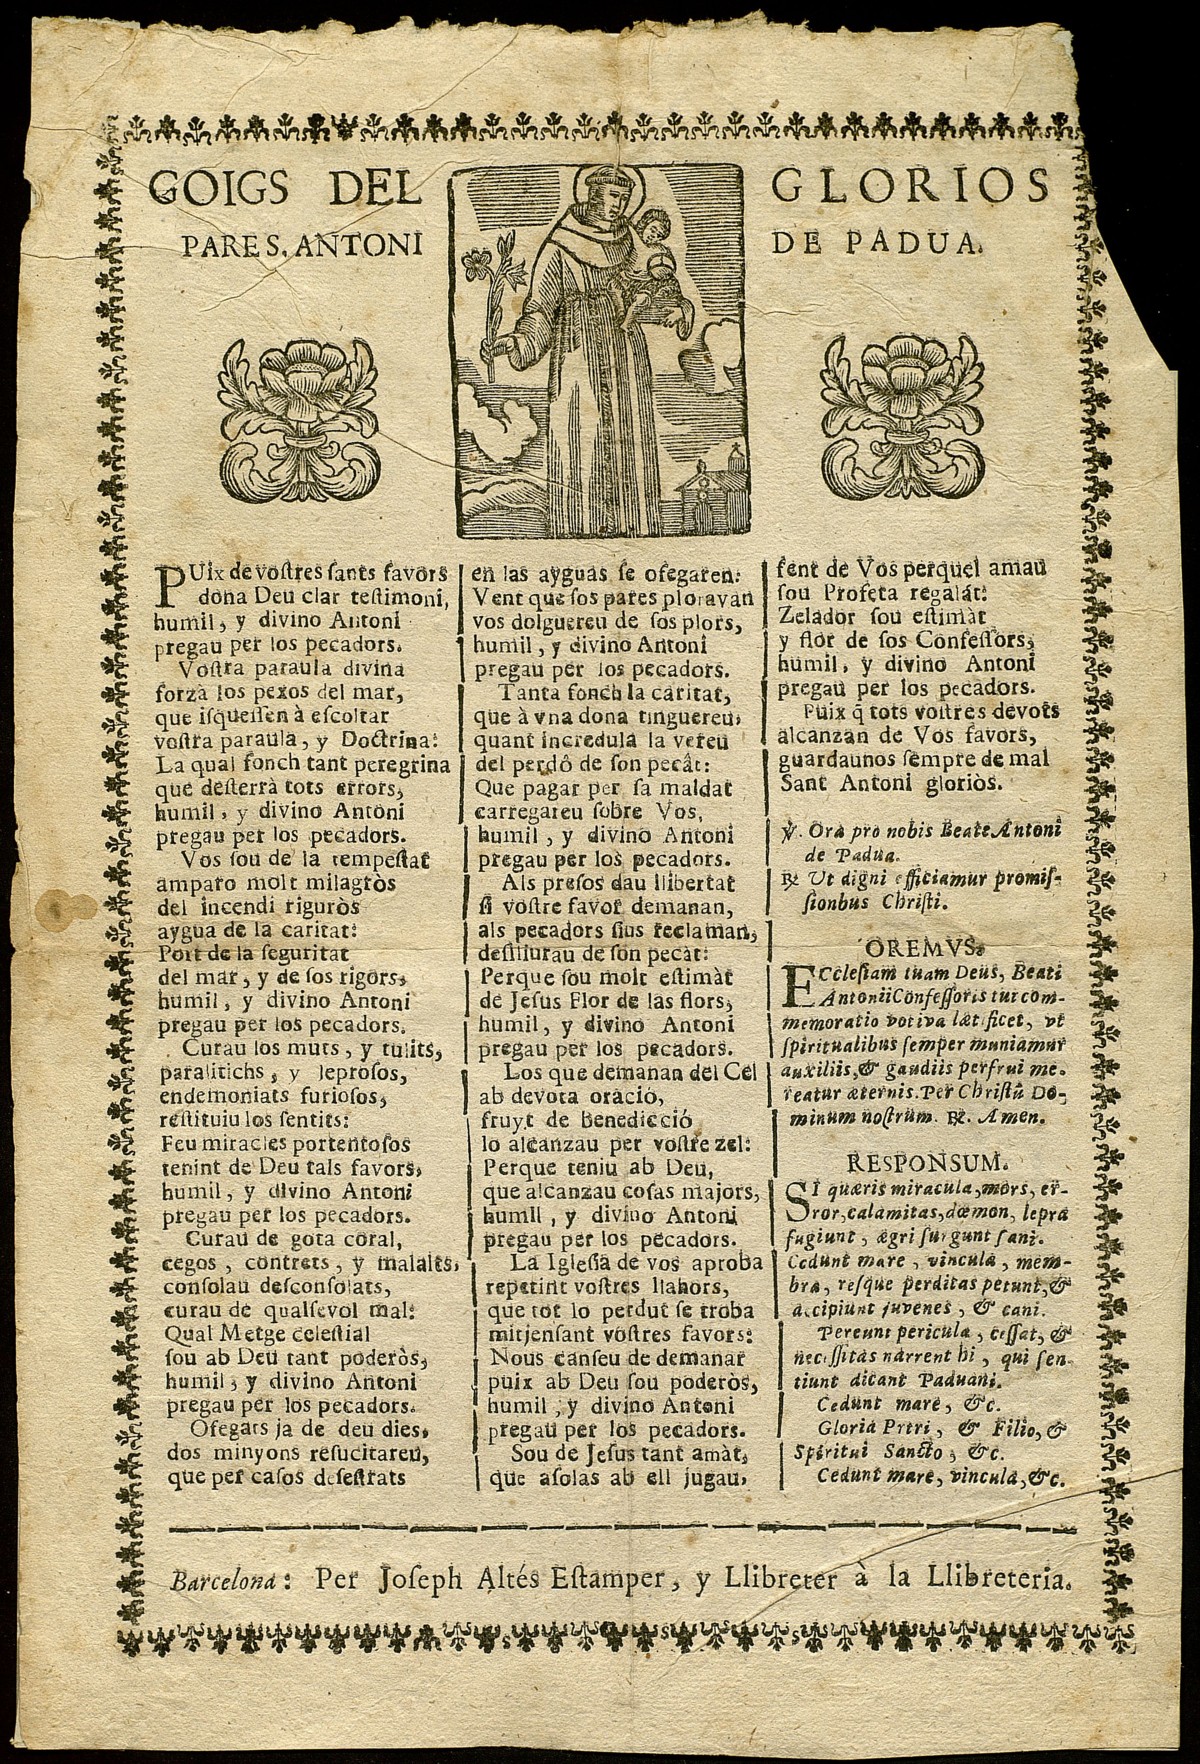 GOIGS DEL GLORIOS
PARE S. ANTONI DE PADUA.
PUix de vostres sants favors
dona Deu clar testimoni,
humil, y divino Antoni
pregau per los pecadors.
Vostra paraula divina
forzà los pexos del mar,
que isquessen à escoltar
vostra paraula, y Doctrina:
La qual fonch tant peregrina
que desterrà tots errors,
humil, y divino Antoni
pregau per los pecadors.
Vos sou de la tempestat
amparo molt milagròs
del incendi riguròs
aygua de la caritat:
Port de la seguritat
del mar, y de sos rigors,
humil, y divino Antoni
pregau per los pecadors.
Curau los muts, y tulits,
paralitichs, y leprosos,
endemoniats furiosos,
restituiu los sentits:
Feu miracles portentosos
tenint de Deu tals favors,
humil, y divino Antoni
pregau per los pecadors.
Curau de gota coral,
cegos, contrets, y malalts,
consolau desconsolats,
curau de qualsevol mal:
Qual Metge celestial
sou ab Deu tant poderòs,
humil, y divino Antoni
pregau per los pecadors.
Ofegars ja de deu dies,
dos minyons resucitareu,
que per casos desestrats
en las ayguas se ofegaren:
Vent que sos pares ploravan
vos dolguereu de sos plors,
humil, y divino Antoni
pregau per los pecadors.
Tanta fonch la caritat,
que à vna dona tinguereu,
quant incredula la vereu
del perdô de son pecât:
Que pagar per sa maldat
carregareu sobre Vos,
humil, y divino Antoni
pregau per los pecadors.
Als presos dau llibertat
si vostre favor demanan,
als pecadors sius reclaman,
deslliurau de son pecàt:
Perque sou molt estimàt
de Jesus Flor de las flors,
humil, y divino Antoni
pregau per los pecadors.
Los que demanan del Cel
ab devota oraciò,
fruyt de benedicciò
lo alcanzau per vostre zel:
Perque teniu ab Deu,
que alcanzau cosas majors,
humil, y divino Antoni
pregau per los pecadors.
La Iglesia de vos aproba
repetint vostres llahors,
que tot lo perdut se troba
mitjensant vostres favors:
Nous canseu de demanar
puix ab Deu sou poderòs,
humil, y divino Antoni
pregau per los pecadors.
Sou de Jesus tant amàt,
que asolas ab ell jugau,
sent de Vos perquel amau
sou Profeta regalàt:
Zelador sou estimàt
y flor de sos Confessors,
humil, y divino Antoni
pregau per los pecadors.
Puix q̃ tots vostres devots
alcanzan de Vos favors,
guardaunos sempre de mal
Sant Antoni gloriòs.
℣. Ora pro nobis Beate Antoni
de Padua.
℞ Ut digni efficiamur promis-
sionbus Christi.
OREMVS.
ECclesiam tuam Deus, Beati
Antonii Confessoris tui com-
memoratio votiva lætificet, vt
spiritualibus semper muniamur
auxiliis, & gaudiis perfrui me-
reatur æternis. Per Christû Do-
minum nostrum. ℞. Amen.
RESPONSUM.
SI quæris miracula, mors, er-
ror, calamitas, dæmon, lepra
fugiunt, ægri surgunt sani.
Cedunt mare, vincula, mem-
bra, resque perditas petunt, &
accipiunt juvenes, & cani.
Pereunt pericula, cessat, &
necessitas narrent hi, qui sen-
tiunt dicant Paduani.
Cedunt mare, &c.
Gloria Prtri, & Filio, &
Spiritui Sancto, &c.
Cedunt mare, vincula, &c.
Barcelona: Per Joseph Altés Estamper, y Llibreter à la Llibreteria.